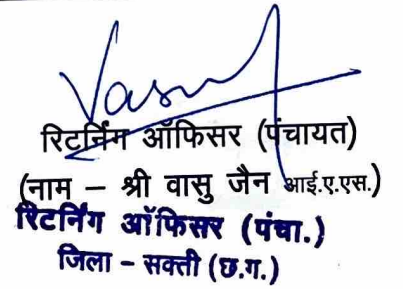 Vasu
रिटर्निंग ऑफिसर (पंचायत)
(नाम – श्री वासु जैन आई.ए.एस.)
रिटर्निंग ऑफिसर (पंचा.)
जिला - सक्ती (छ.ग.)